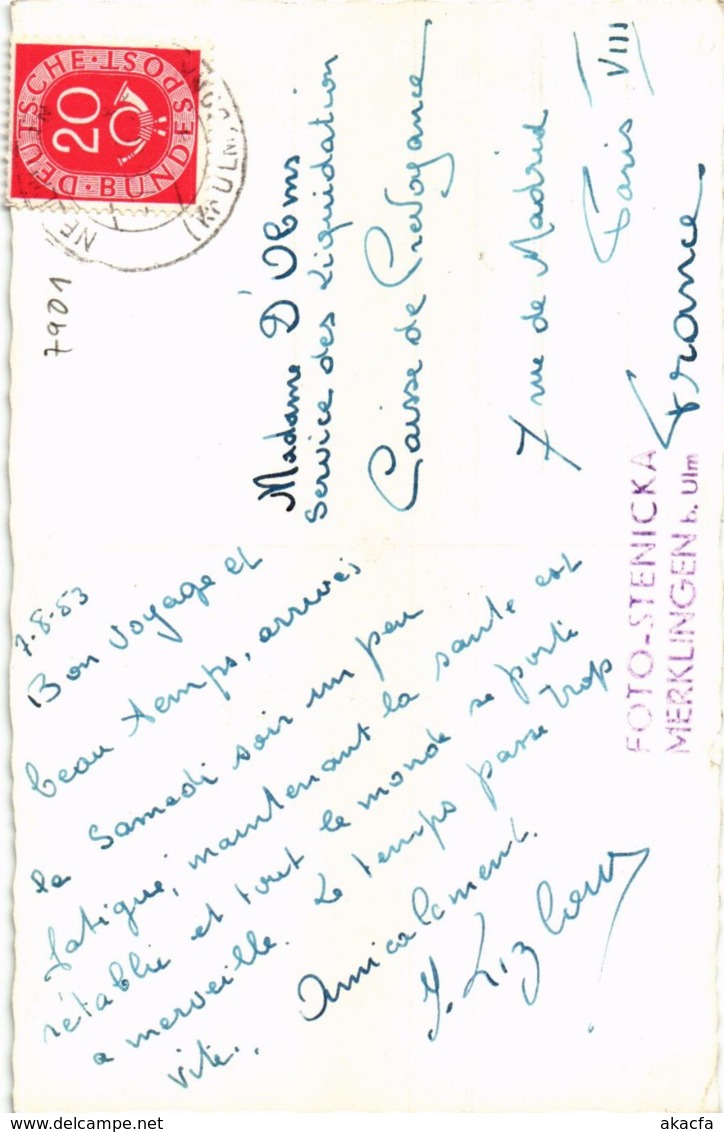 DEUTSCHE BUNDESPOST
20
(Kr. ULM
7901
7.8.53
Bon voyage et
beau temps, arrivés
le Samedi soir un peu
fatigué, maintenant la santé est
rétablie et tout le monde se porte
a merveille. Le temps passe trop
vite. Amicalement.
Madame D'
Service des Liquidation
Caisse de Prevoyance
7 rue de Madrid
Paris VIII
France
FOTO-STENICKA
MERKLINGEN b. Ulm
akacfa
www.delcampe.net